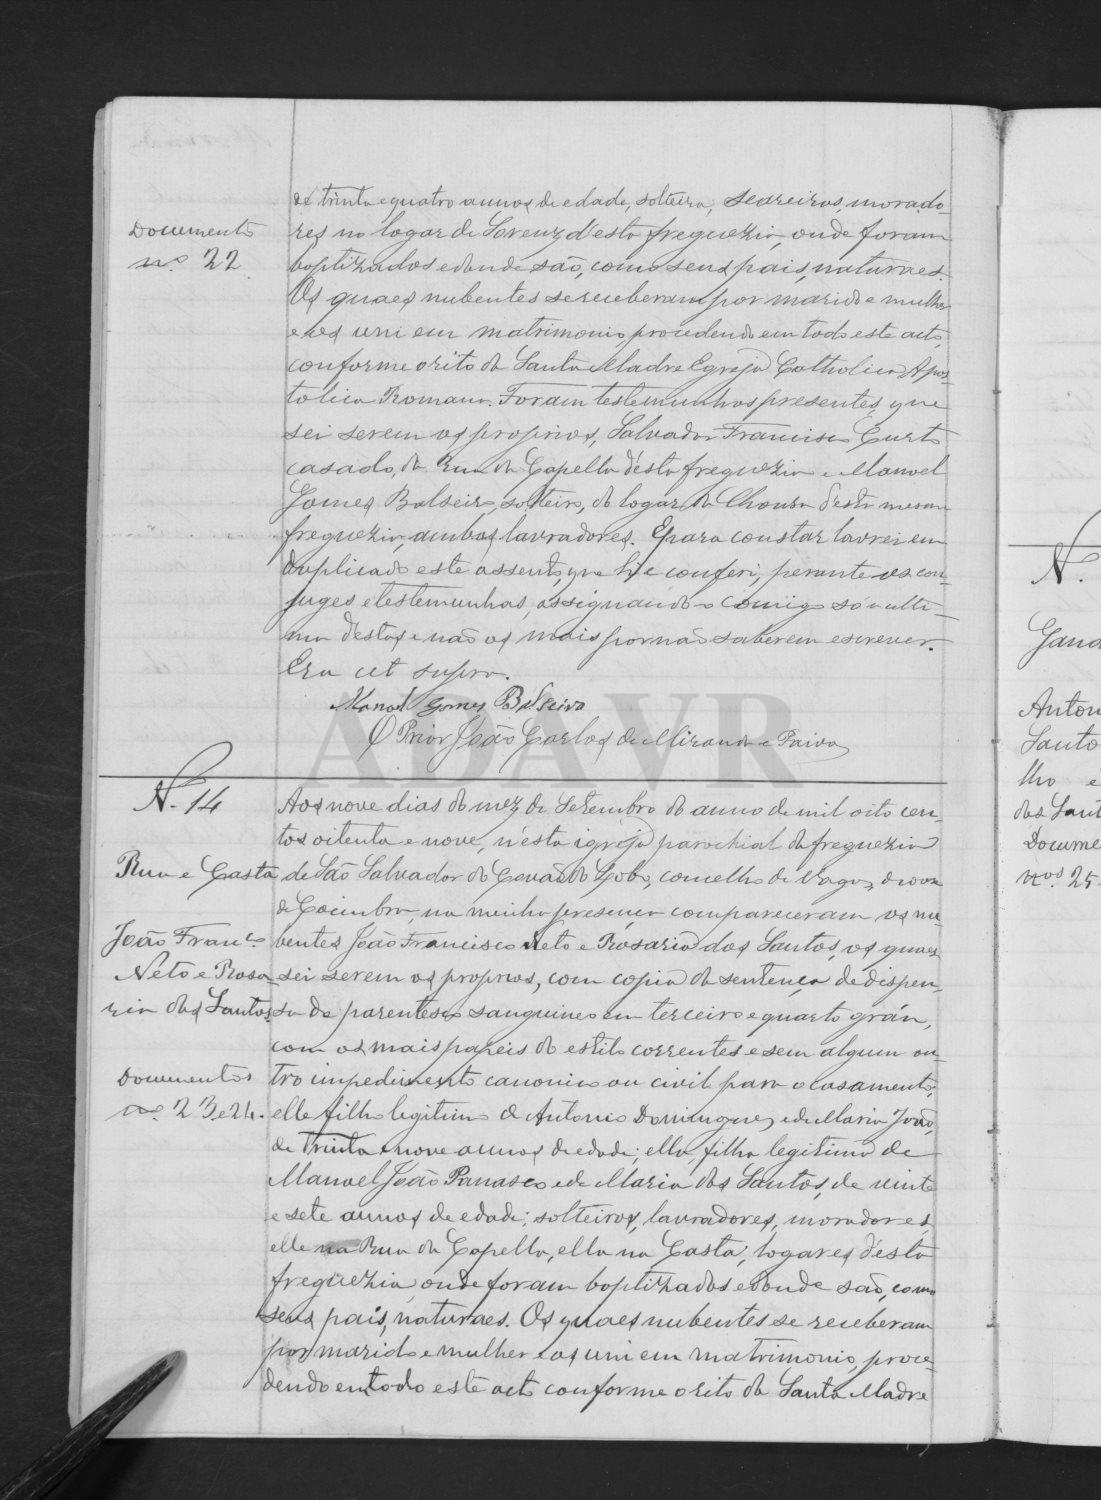 de trinta e quatro annos de edade, solteira, seareiros, morado-
res no logar de Lorenz, d'esta freguezia, onde foram
baptizados e donde são, como seus pais, naturaes.
Os quaes nubentes se receberam por marido e mulher
e os uni em matrimonio, procedendo em todo este acto,
conforme o rito da Santa Madre Egreja Catholica Apos-
tolica Romana. Foram testemunhas presentes, que
sei serem os proprios, Salvador Francisco Curto
casado, da Rua da Capella d'esta freguezia e Manoel
Gomes Balseiro, solteiro, do logar da Chousa d'esta mesma
freguezia, ambos lavradores. E para constar lavrei em
duplicado este assento, que li e conferi, perante os con-
juges e testemunhas, assignando-o comigo só a ulti-
ma d'estas e não os mais por não saberem escrever.
Era ut supra.
Manoel Gomes Balseiro
O Prior João Carlos de Miranda e Paiva
Documento
nº 22
N. 14
Rua e Gasta
João Franco
Neto e Rosa-
ria dos Santos
Documentos
nos 23 e 24.
Aos nove dias do mez de Setembro do anno de mil oito cen-
tos oitenta e nove, n'esta igreja parochial da freguezia
de São Salvador do Covão do Lobo, concelho de Vagos, diocese
de Coimbra, na minha presença compareceram os nu-
bentes João Francisco Neto e Rosaria dos Santos, os quaes
sei serem os proprios, com copia da sentença de dispen-
sa de parentesco sanguineo em terceiro e quarto gráu,
com os mais papeis do estilo correntes e sem algum ou-
tro impedimento canonico ou civil para o casamento;
elle filho legitimo de Antonio Domingues e de Maria João,
de trinta e nove annos de edade; ella, filha legitima de
Manoel João Panasco e de Maria dos Santos, de vinte
e sete annos de edade; solteiros, lavradores, moradores,
elle na Rua da Capella, ella na Gasta, logares d'esta
freguezia, onde foram baptizados e donde são, como
seus pais, naturaes. Os quaes nubentes se receberam
por marido e mulher e os uni em matrimonio, proce-
dendo em todo este acto conforme o rito da Santa Madre
N.
Ganda
Anton
Santo
lho e
dos Sant
Docume
nos 25
ADAVR